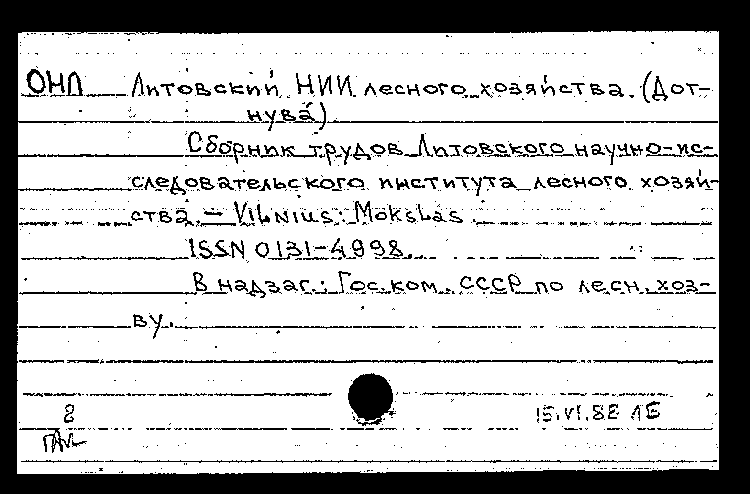 ОНЛ Литовский НИИ лесного хозяйства. (Дот-
нува)
Сборник трудов Литовского научно-ис-
следовательского института лесного хозяй-
ства. - Vilnius: Mokslas.
ISSN 0131-4998.
В надзаг.: Гос. ком. СССР по лесн. хоз-
ву.
2 15.VI.88